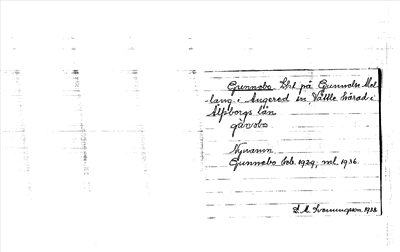 Gunnebo Lht på Gunnvolse Mel-
lang. i Angered sn, Vättle härad i
Älfsborgs län
gànıbo
Nynamn
Gunnebo bob. 1929, nol. 1936.
S. A. Svenningson 1938